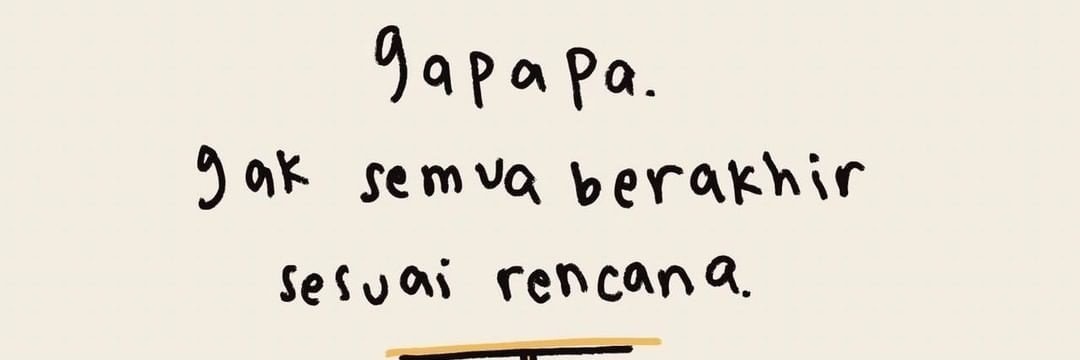 gapapa.
gak semua berakhir
sesuai rencana.